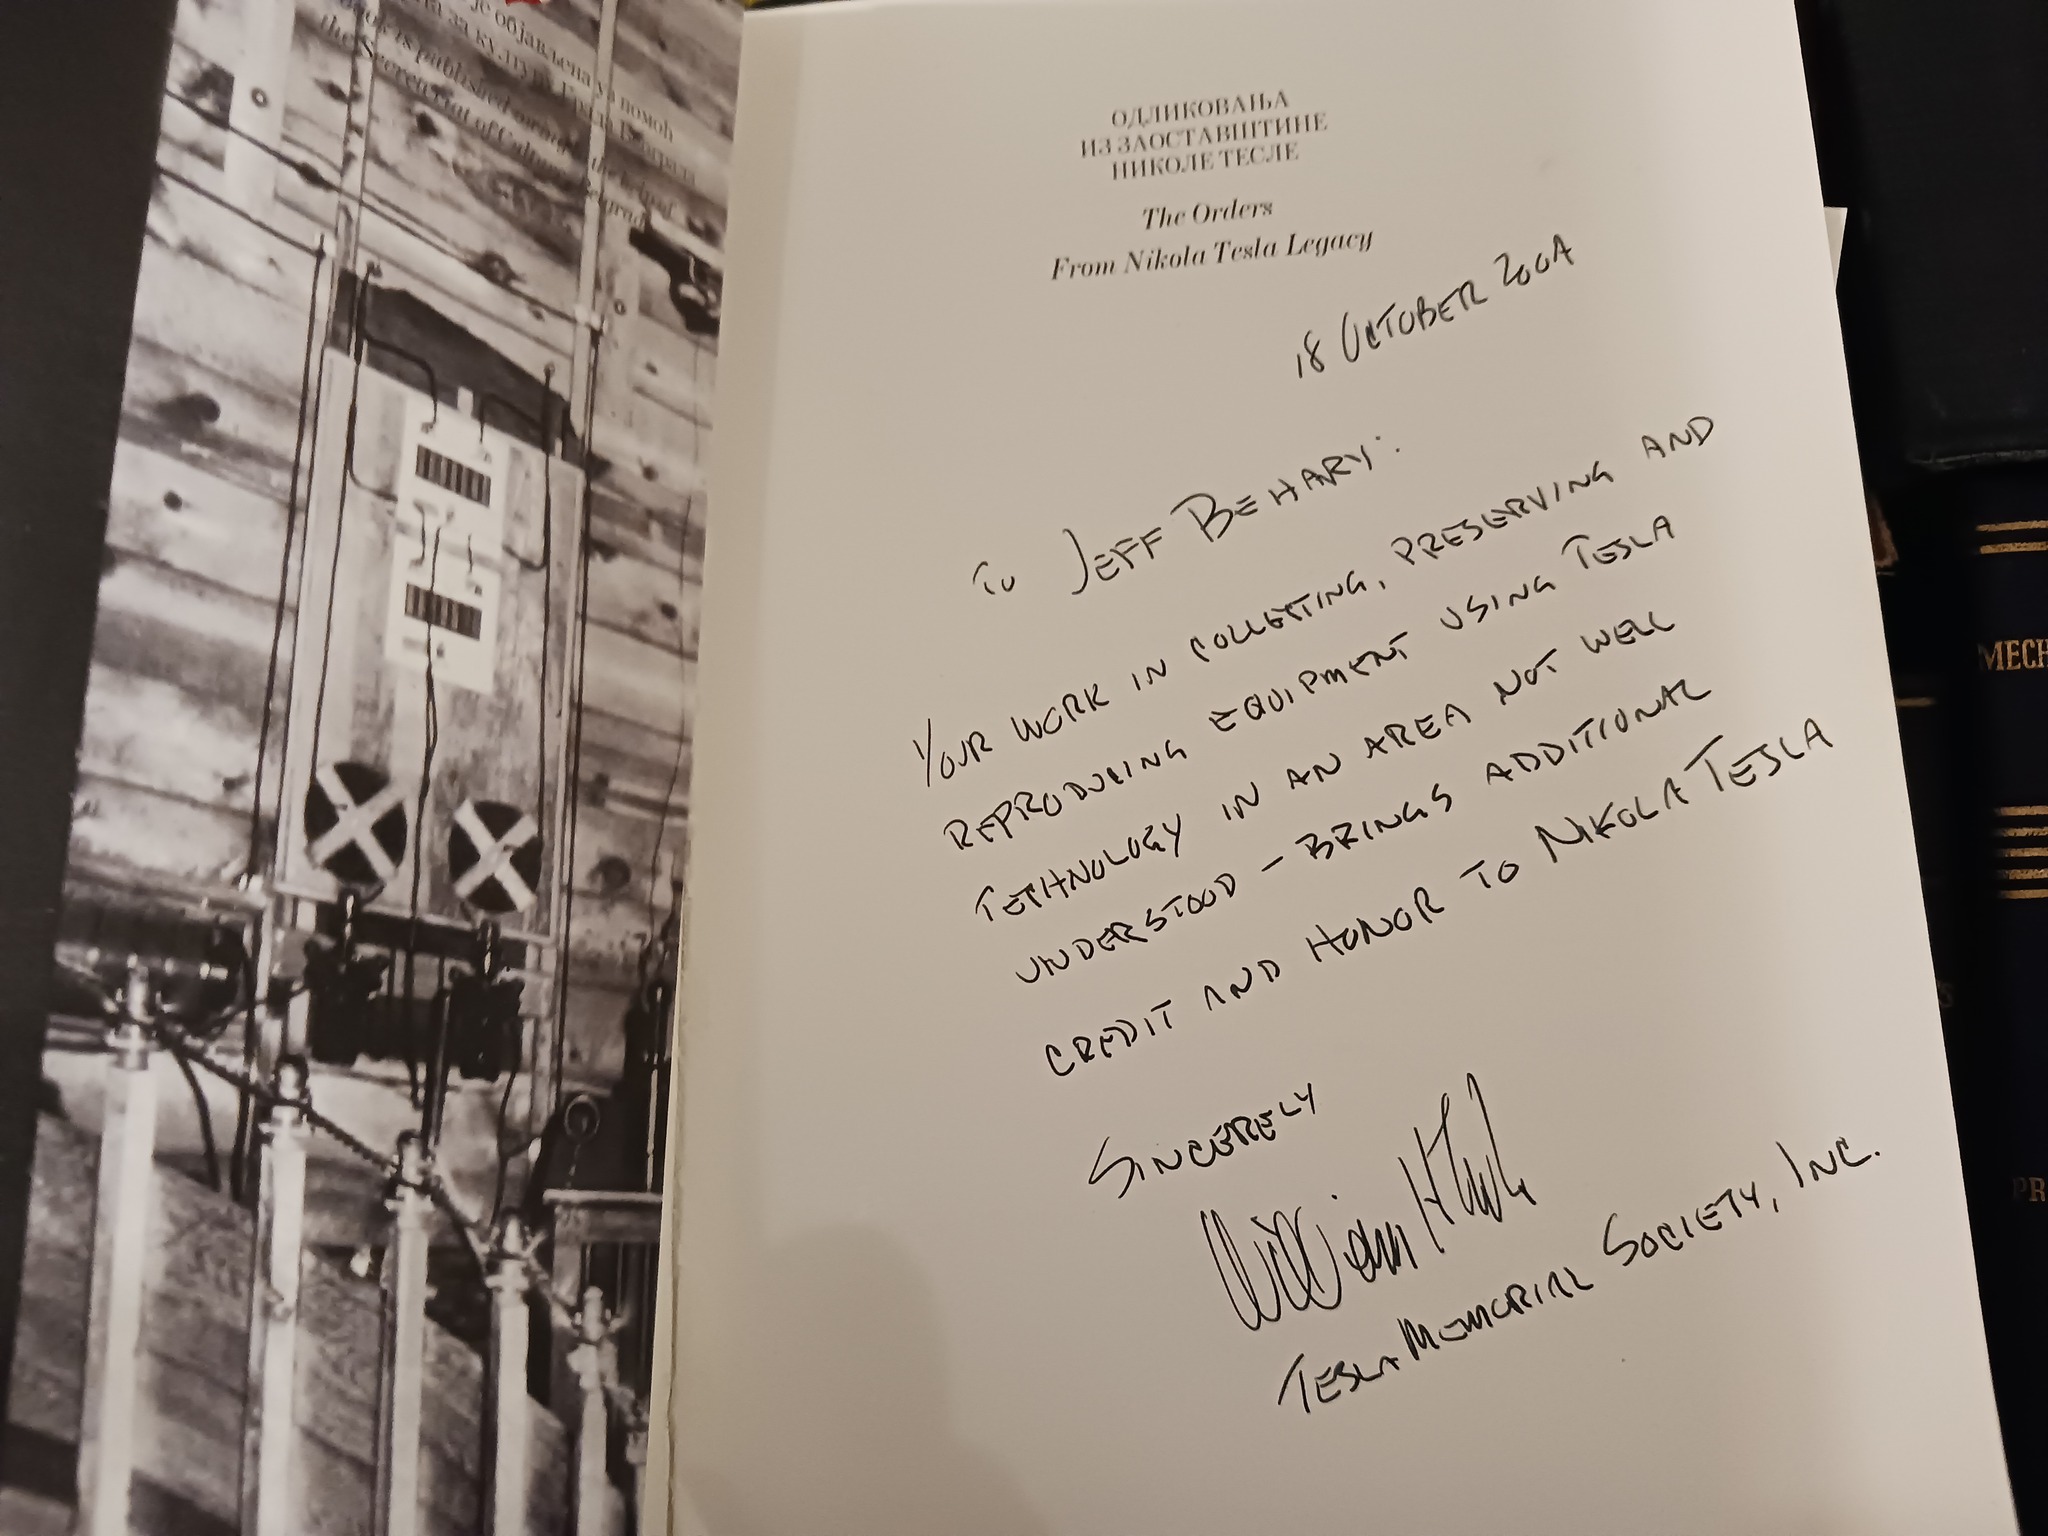 је објављена уз помоћ
за културу Града Београда
book is published through the help of
the Secretariat of Culture Belgrade
ОДЛИКОВАЊА
ИЗ ЗАОСТАВШТИНЕ
НИКОЛЕ ТЕСЛЕ
The Orders
From Nikola Tesla Legacy
18 OCTOBER 2004
TO JEFF BEHARY:
YOUR WORK IN COLLECTING, PRESERVING AND
REPRODUCING EQUIPMENT USING TESLA
TECHNOLOGY IN AN AREA NOT WELL
UNDERSTOOD - BRINGS ADDITIONAL
CREDIT AND HONOR TO NIKOLA TESLA
SINCERELY
William H.
TESLA MEMORIAL SOCIETY, INC.
MECH
PR